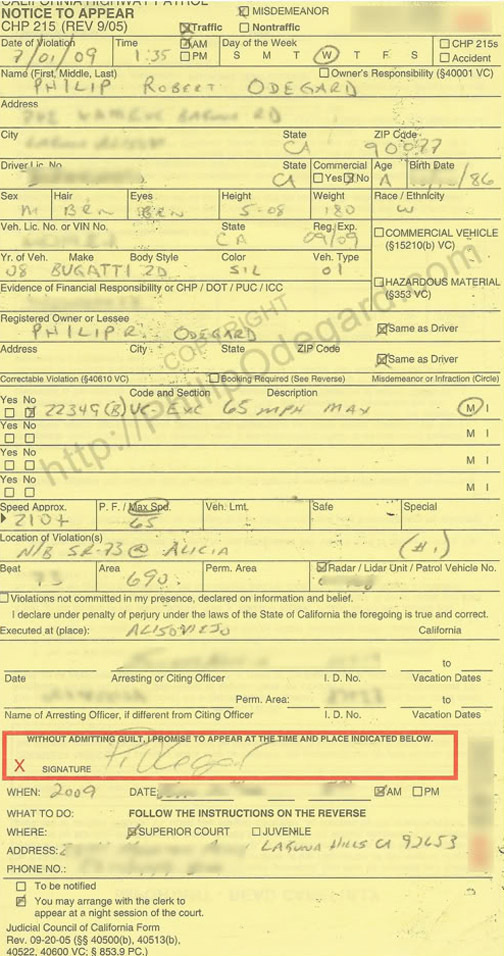 CALIFORNIA HIGHWAY PATROL
NOTICE TO APPEAR
CHP 215 (REV 9/05)
MISDEMEANOR
Traffic Nontraffic
Date of Violation Time AM PM Day of the Week CHP 215s
7/01/09 1:35 S M T W T F S Accident
Name (First, Middle, Last) Owner's Responsibility (§40001 VC)
PHILIP ROBERT ODEGARD
Address
City State ZIP Code
CA
Driver Lic. No. State Commercial Age Birth Date
CA Yes No /86
Sex Hair Eyes Height Weight Race / Ethnicity
M BRN BRN 5-08 180 W
Veh. Lic. No. or VIN No. State Reg./Exp.
CA 09/09
COMMERCIAL VEHICLE
(§15210(b) VC)
Yr. of Veh. Make Body Style Color Veh. Type
08 BUGATTI 2D SIL 01
HAZARDOUS MATERIAL
(§353 VC)
Evidence of Financial Responsibility or CHP / DOT / PUC / ICC
Registered Owner or Lessee
PHILIP R. ODEGARD
Same as Driver
Address City State ZIP Code
Same as Driver
Correctable Violation (§40610 VC) Booking Required (See Reverse) Misdemeanor or Infraction (Circle)
Yes No Code and Section Description
22349(B) VC- EXC 65 MPH MAX M I
Yes No M I
Yes No M I
Yes No M I
Speed Approx. P. F. / Max Spd. Veh. Lmt. Safe Special
210+ 65
Location of Violation(s)
N/B SR-73 @ ALICIA (#1)
Beat Area Perm. Area Radar / Lidar Unit / Patrol Vehicle No.
690
Violations not committed in my presence, declared on information and belief.
I declare under penalty of perjury under the laws of the State of California the foregoing is true and correct.
Executed at (place): ALISO VIEJO California
to
Date Arresting or Citing Officer I. D. No. Vacation Dates
Perm. Area: to
Name of Arresting Officer, if different from Citing Officer I. D. No. Vacation Dates
WITHOUT ADMITTING GUILT, I PROMISE TO APPEAR AT THE TIME AND PLACE INDICATED BELOW.
X SIGNATURE
WHEN: 2009 DATE AM PM
WHAT TO DO: FOLLOW THE INSTRUCTIONS ON THE REVERSE
WHERE: SUPERIOR COURT JUVENILE
ADDRESS: LAGUNA HILLS CA 92653
PHONE NO.:
To be notified
You may arrange with the clerk to
appear at a night session of the court.
Judicial Council of California Form
Rev. 09-20-05 (§§ 40500(b), 40513(b),
40522, 40600 VC; § 853.9 PC.)
COPYRIGHT
http://PhilipOdegard.com